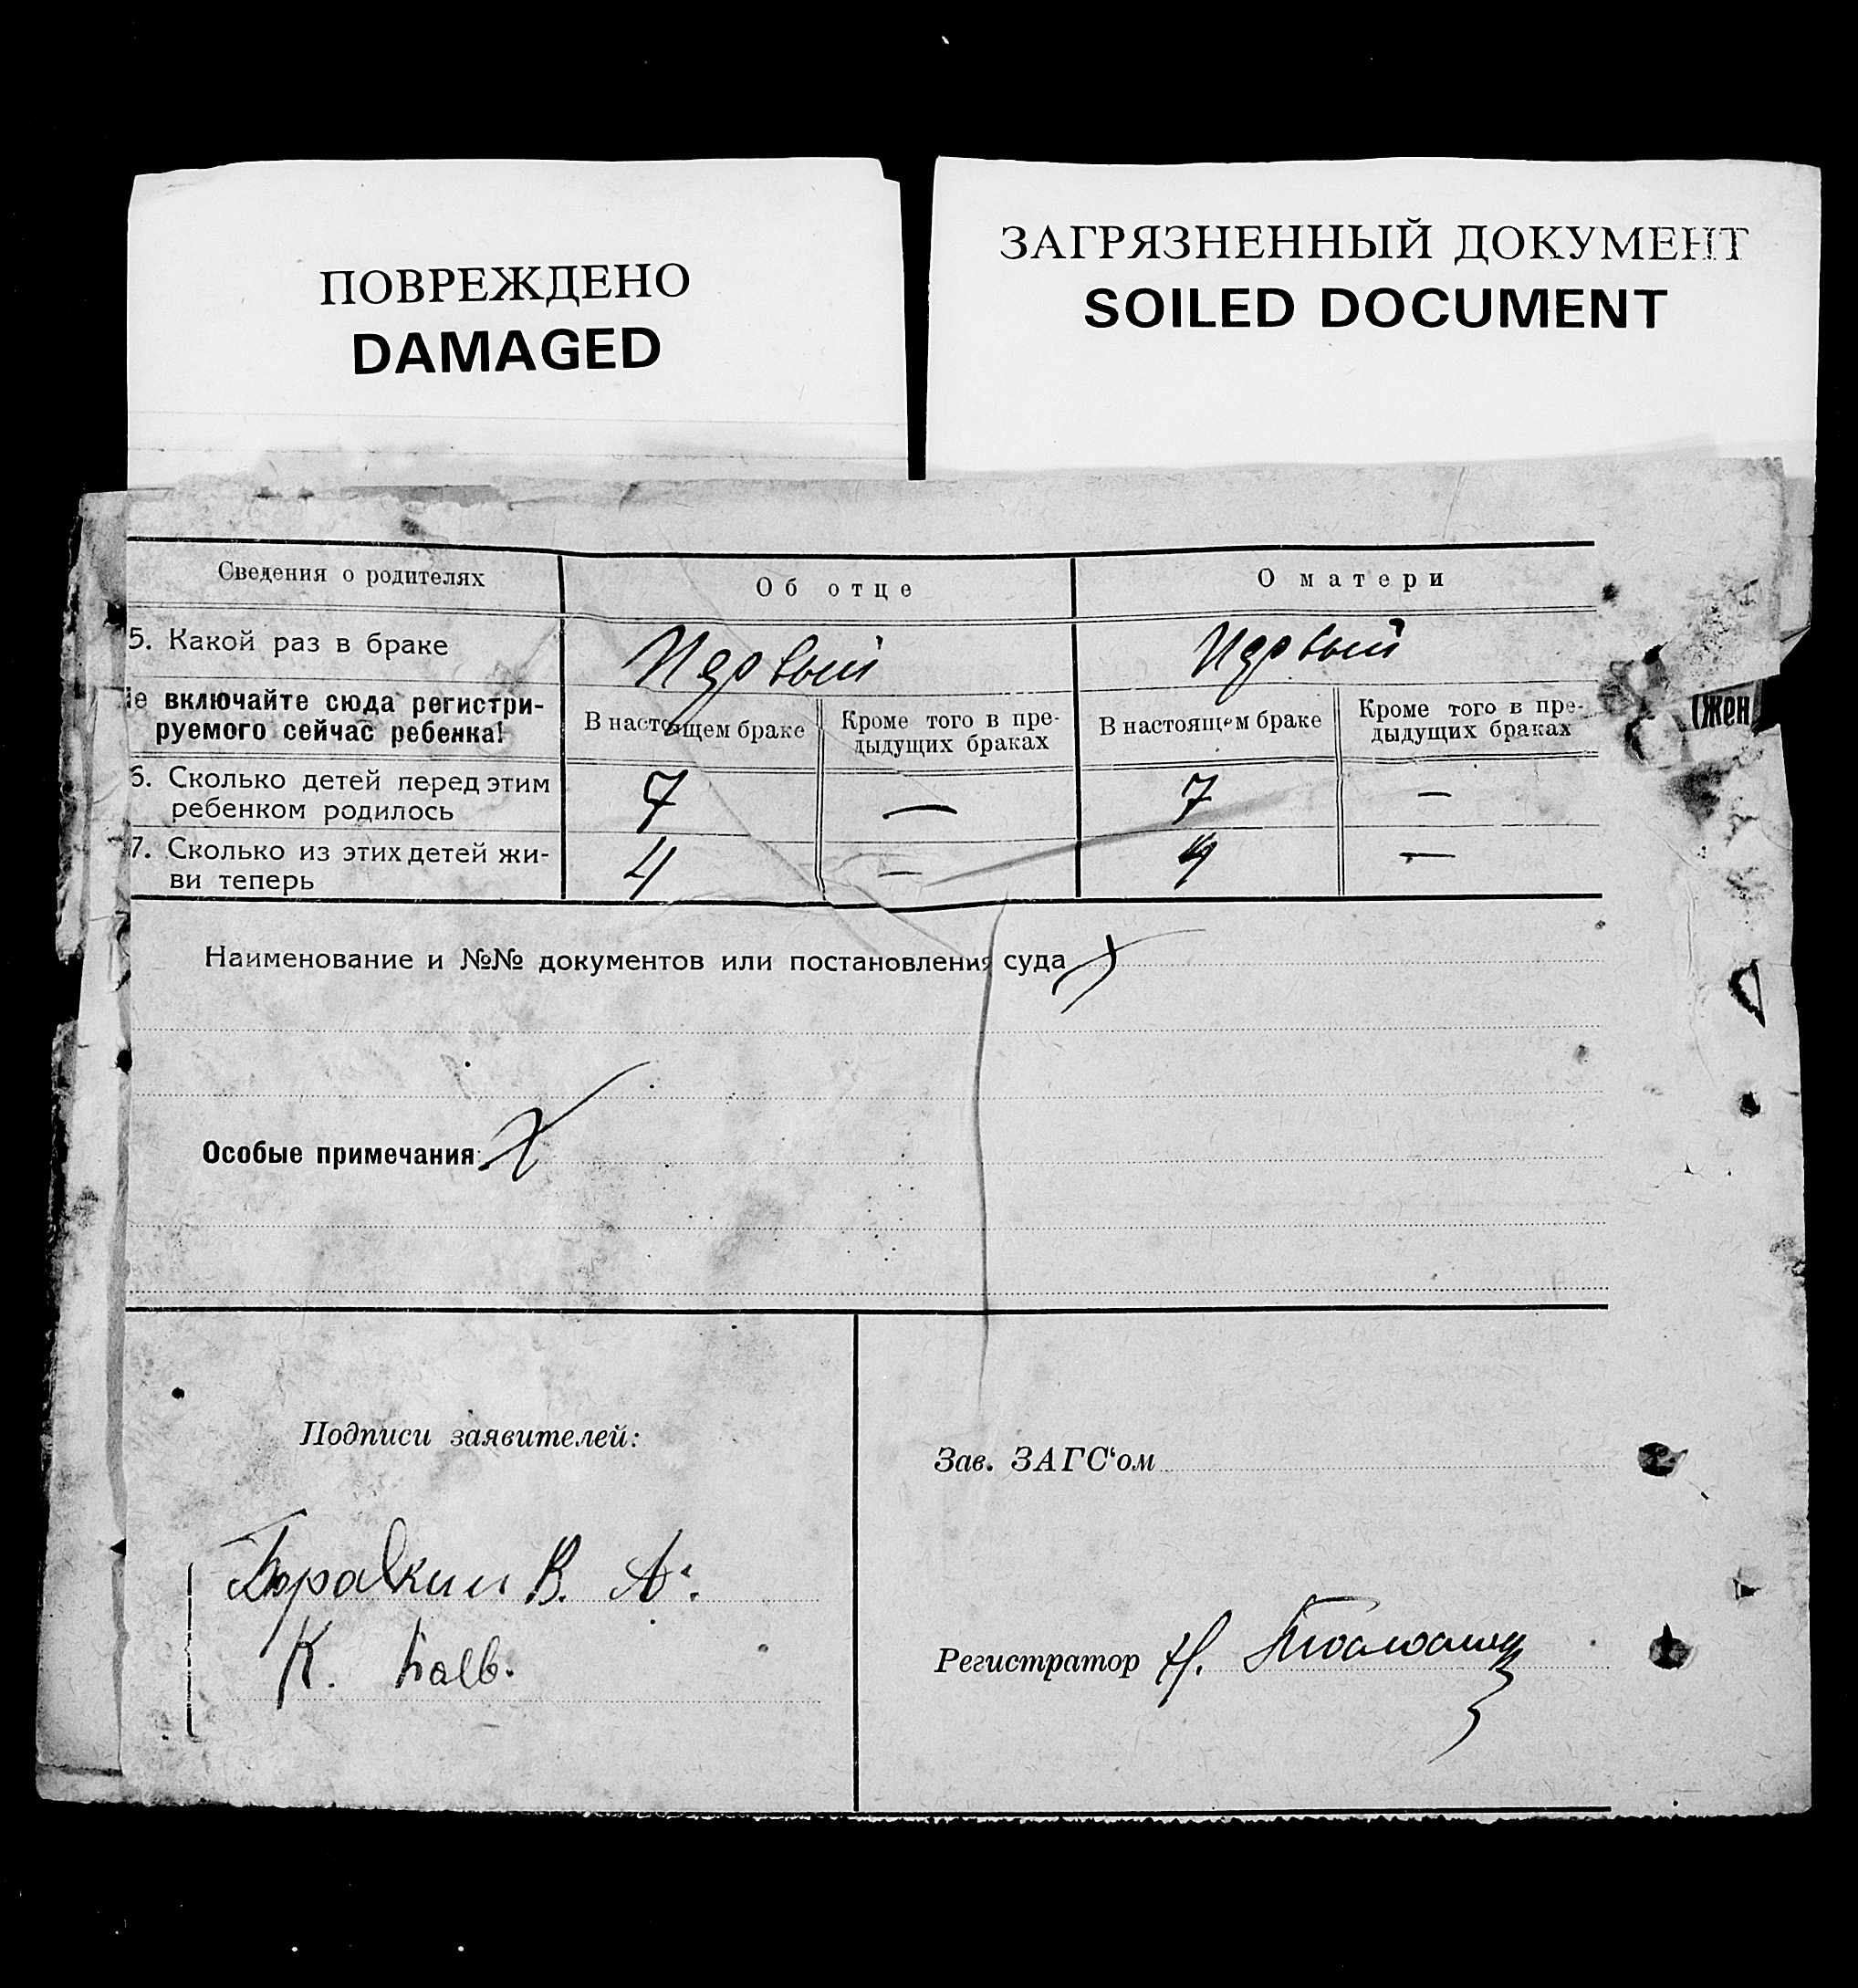 ПОВРЕЖДЕНО
DAMAGED
ЗАГРЯЗНЕННЫЙ ДОКУМЕНТ
SOILED DOCUMENT
Сведения о родителях
Об отце
О матери
5. Какой раз в браке
Первый
Первый
включайте сюда регистри-
руемого сейчас ребенка!
В настоящем браке
Кроме того в пре-
дыдущих браках
В настоящем браке
Кроме того в пре-
дыдущих браках
6. Сколько детей перед этим
ребенком родилось
7
—
7
—
7. Сколько из этих детей жи-
ви теперь
4
—
4
—
Наименование и №№ документов или постановления суда
Особые примечания
Подписи заявителей:
В. А.
К.
Зав. ЗАГС‘ом
Регистратор